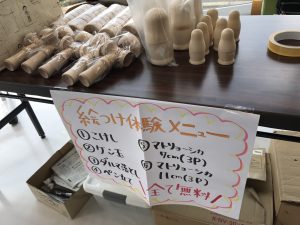 絵つけ体験メニュー
①こけし
②ケン玉
③ダルマ落とし
④ペンたて
⑤マトリョーシカ
9cm(3P)
⑥マトリョーシカ
11cm(3P)
全て無料!